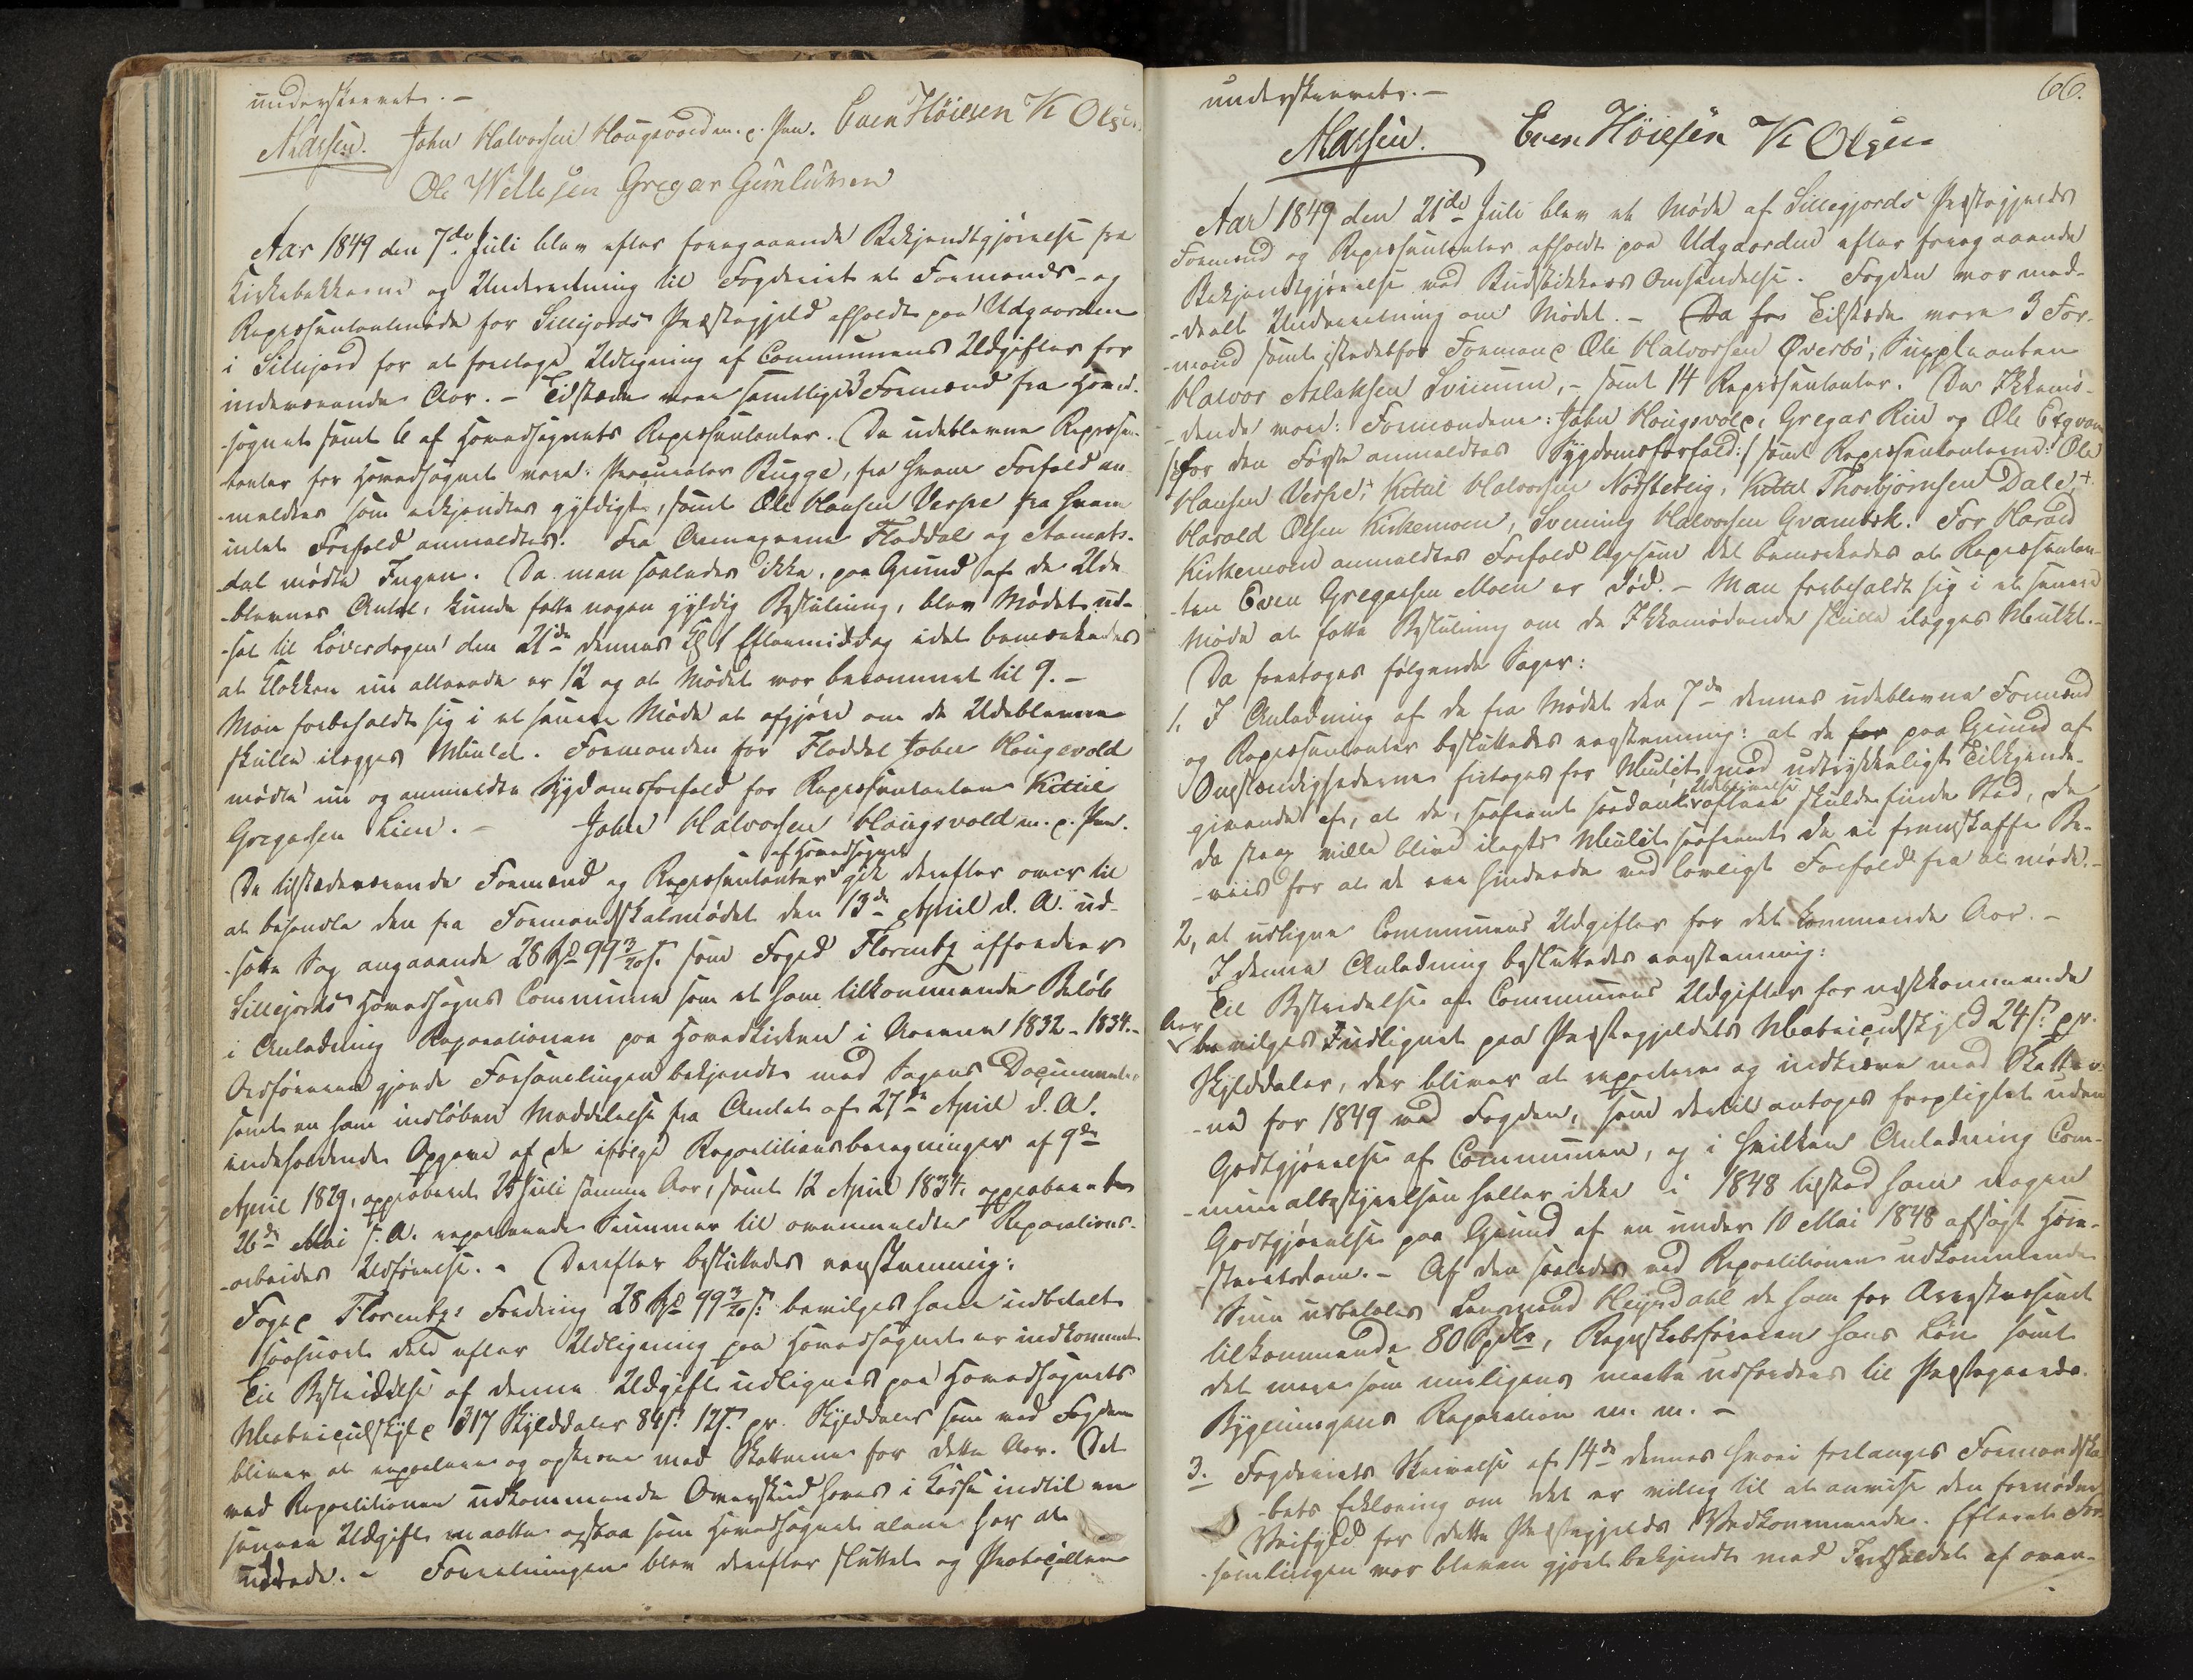 underskrevet. –
Aarsen. John Halvorsen Hougsvold m. e. Pen. Even Höiesen K Olsen
Ole Wetlesen Gregar Gunlüksen
Aar 1849 den 7de Juli blev efter foregaaende Bekjendtgjørelse fra
Kirkebakkerne og Underretning til Fogderiet et Formands- og
Repræsentantmøde for Sillejords Præstegjeld afholdt paa Udgaarden
i Sillejord for at foretage Udligning af Communens Udgifter for
indeværende Aar. – Tilstæde vare samtlige 3 Formænd fra Hoved-
sognet samt 6 af Hovedsognets Repræsentanter. De udeblevne Repræsen-
tanter for Hovedsognet vare: Procurator Bugge, fra hvem Forfald an-
meldtes som erkjendtes gyldigt, samt Ole Hansen Verpe fra hvem
intet Forfald anmeldtes. Fra Annexerne Fladdal og Aamots-
dal mødte Ingen. Da man saaledes ikke, paa Grund af de Ude-
blevnes Antal, kunde fatte nogen gyldig Beslutning, blev Mødet ud-
sat til Løverdagen den 21de dennes Kl 1 Eftermiddag idet bemærkedes
at Klokken nu allerede er 12 og at Mødet var berammet til 9. –
Man forbeholdt sig i et senere Møde at afgjøre om de Udeblevne
skulle ilægges Mulct. Formanden for Fladdal John Hougsvold
mødte nu og anmeldte Sygdomsforfald for Repræsentanten Kittil
Gregarsen Lien. – John Halvorsen Hougsvold m. e. Pen.
De tilstædeværende Formænd og Repræsentanter af Hovedsognet gik derefter over til
at behandle den fra Formandskabsmødet den 13de April d. A. ud-
satte Sag angaaende 28 Spd 99 3/20 s. som Foged Florentz affordrer
Sillejords Hovedsogns Commune som et ham tilkommende Beløb
i Anledning Reparationen paa Hovedkirken i Aarene 1832–1834. –
Ordføreren gjorde Forsamlingen bekjendt med Sagens Documenter
samt en ham indløben Meddelelse fra Amtet af 27de April d. A.
indeholdende Opgave af de ifølge Repartitionsberegninger af 9de
April 1829, approberet 25 Juli samme Aar, samt 12 April 1834, approberet
26de Mai s. A. reparterede Summer til ovenmeldte Reparations-
arbeides Udførelse. – Derefter besluttedes eenstemmig:
Foged Florentz's Fordring 28 Spd 99 3/20 s. bevilges ham udbetalt
saasnart dette efter Udligning paa Hovedsognet er indkommet.
Til Bestridelse af denne Udgift udlignes paa Hovedsognets
Matriculskyld 317 Skylddaler 84 s. 12 s. pr. Skylddaler som ved Fogden
bliver at repartere og opkræve med Skatterne for dette Aar. Det
ved Repartitionen udkommende Overskud haves i Kasse indtil en
senere Udgift maatte opstaa som Hovedsognet alene har at
udrede. – Forretningen blev derefter sluttet og Protocollen
66.
underskrevet. –
Aarsen. Even Höiesen K Olsen
Aar 1849 den 21de Juli blev et Møde af Sillegjords Præstegjelds
Formænd og Repræsentanter afholdt paa Udgaarden efter foregaaende
Bekjendtgjørelse ved Budstikkers Omsendelse. Fogden var med-
deelt Underretning om Mødet. – Da for Tilstæde vare 3 For-
mænd samt istedetfor Formand Ole Halvorsen Øverbö, Suppleanten
Halvor Aslaksen Svinum, – samt 14 Repræsentanter. De Ikkemø-
dende vare: Formændene: John Hougsvold, Gregar Rui og Ole Exgvam
/: for den Første anmeldtes Sygdomsforfald :/ samt Repræsentanterne: Ole
Hansen Verpe, Kittil Halvorsen Nordstebig, Kittil Thorbjørnsen Dale,
Harald Olsen Kirkemoen, Svennung Halvorsen Gvambek. For Harald
Kirkemoen anmeldtes Forfald ligesom det bemærkedes at Repræsentan-
ten Even Gregarsen Moen er død. – Man forbeholdt sig i et senere
Møde at fatte Beslutning om de Ikkemødende skulle ilægges Mulkt. –
Da foretoges følgende Sager:
1, I Anledning af de fra Mødet den 7de dennes udeblevne Formænd
og Repræsentanter besluttedes eenstemmig: at de for paa Grund af
Omstændighederne fritages for Mulct med udtrykkeligt Tilkjende-
givende af, at de, saafremt saadan Udeblivelse oftere skulde finde Sted, de
da strax ville blive ilagte Mulct saafremt de ei fremskaffe Be-
viis for at de ere hindrede ved lovligt Forfald fra at møde. –
2, at udligne Communens Udgifter for det kommende Aar. –
I denne Anledning besluttedes eenstemmig:
Til Bestridelse af Communens Udgifter for næstkommende
Aar bevilges udlignet paa Præstegjeldets Matriculskyld 24 s. pr.
Skylddaler, der bliver at repartere og indkræve med Skatter-
ne for 1849 ved Fogden, som dertil antages forpligtet uden
Godtgjørelse af Communen, og i hvilken Anledning Com-
munalbestyrelsen heller ikke i 1848 tilstod ham nogen
Godtgjørelse paa Grund af en under 10 Mai 1848 afsagt Høie-
steretsdom. – Af den saaledes ved Repartitionen udkommende
Sum udbetales Lensmand Heyerdahl de ham for Arrestvæsenet
tilkommende 80 Spdlr, Regnskabsføreren hans Løn samt
det mere som muligens maatte udfordres til Præstegaards-
Bygningens Reparation m. m. –
3. Fogderiets Skrivelse af 14de dennes hvori forlanges Formandska-
bets Erklæring om det er villig til at anvise den fornødne
Veifyld for dette Præstegjelds Vedkommende. Efterat For-
samlingen var bleven gjort bekjendt med Indholdet af oven-